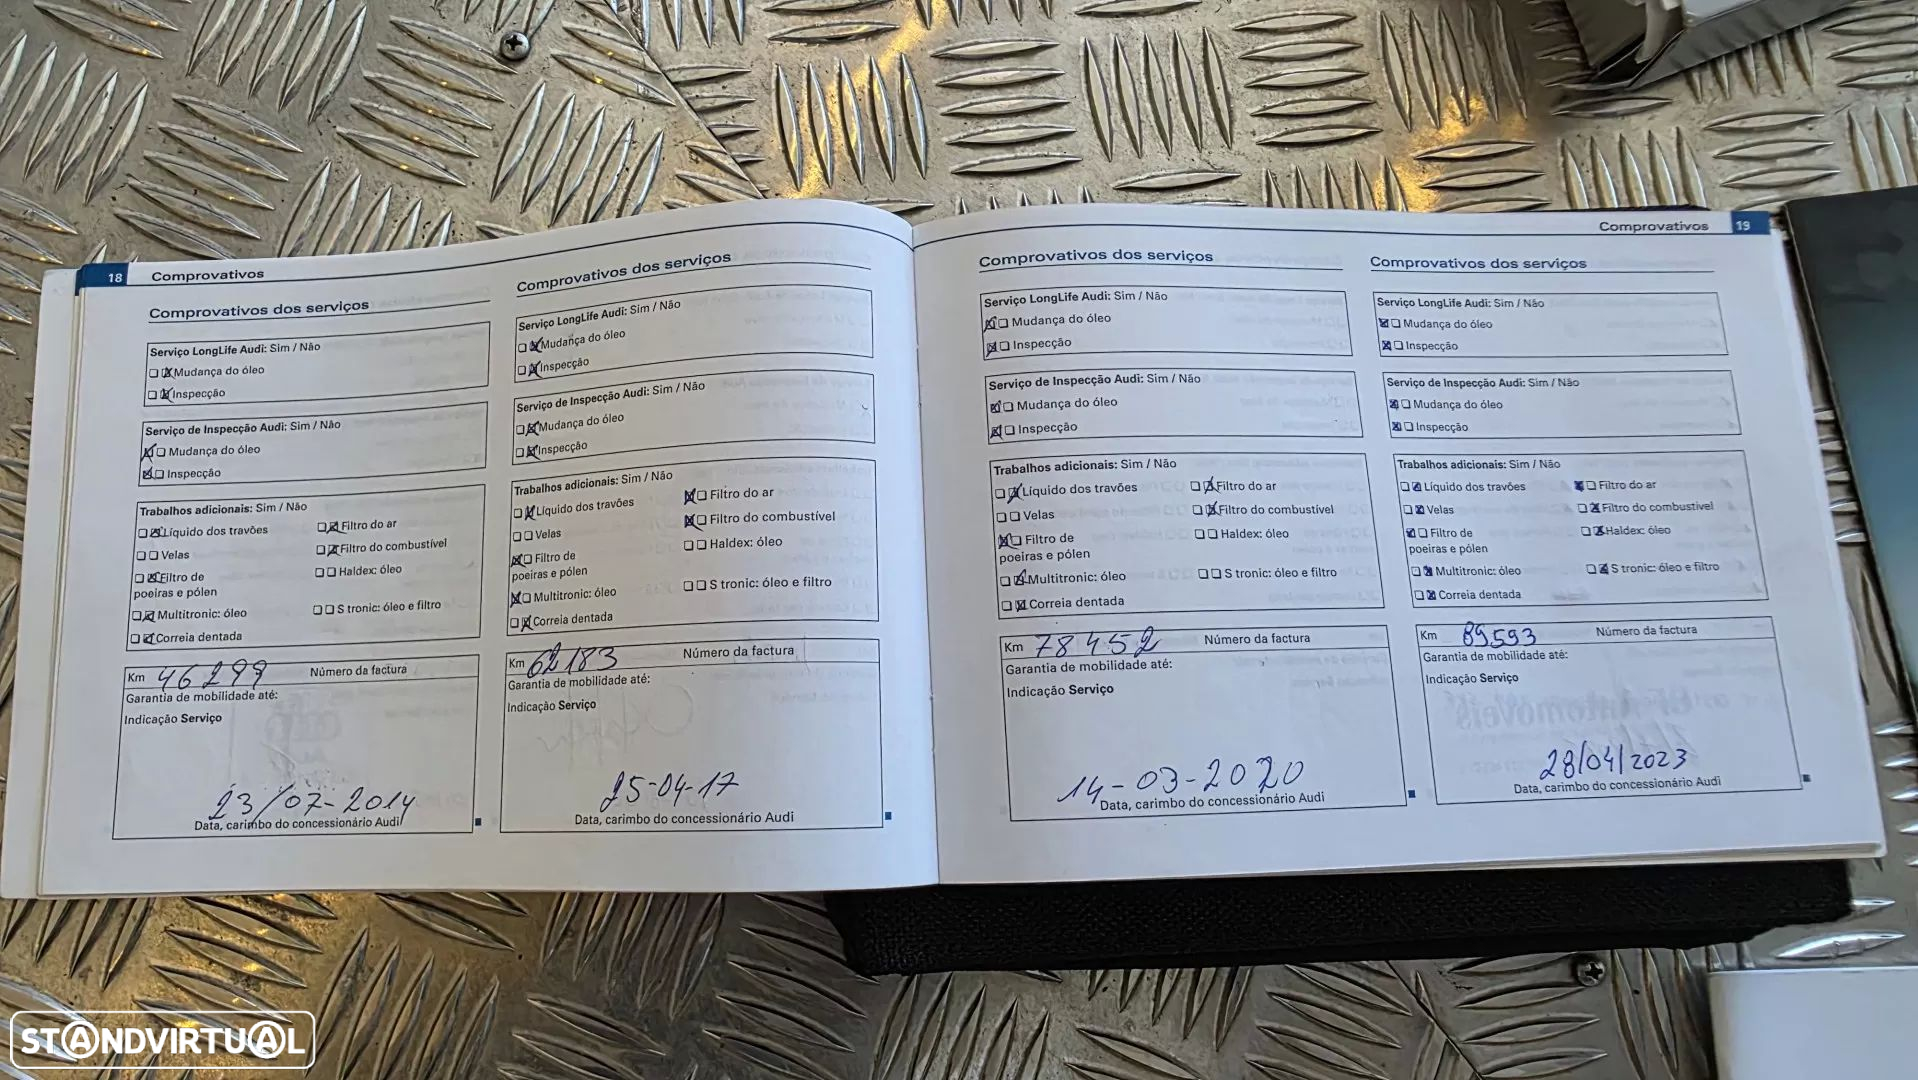 18 Comprovativos
Comprovativos dos serviços
Serviço LongLife Audi: Sim / Não
Mudança do óleo
Inspecção
Serviço de Inspecção Audi: Sim / Não
Mudança do óleo
Inspecção
Trabalhos adicionais: Sim / Não
Líquido dos travões Filtro do ar
Velas Filtro do combustível
Filtro de Haldex: óleo
poeiras e pólen
Multitronic: óleo S tronic: óleo e filtro
Correia dentada
Km 46299 Número da factura
Garantia de mobilidade até:
Indicação Serviço
23/07-2014
Data, carimbo do concessionário Audi
Comprovativos dos serviços
Serviço LongLife Audi: Sim / Não
Mudança do óleo
Inspecção
Serviço de Inspecção Audi: Sim / Não
Mudança do óleo
Inspecção
Trabalhos adicionais: Sim / Não
Líquido dos travões Filtro do ar
Velas Filtro do combustível
Filtro de Haldex: óleo
poeiras e pólen
Multitronic: óleo S tronic: óleo e filtro
Correia dentada
Km 62183 Número da factura
Garantia de mobilidade até:
Indicação Serviço
25-04-17
Data, carimbo do concessionário Audi
Comprovativos 19
Comprovativos dos serviços
Serviço LongLife Audi: Sim / Não
Mudança do óleo
Inspecção
Serviço de Inspecção Audi: Sim / Não
Mudança do óleo
Inspecção
Trabalhos adicionais: Sim / Não
Líquido dos travões Filtro do ar
Velas Filtro do combustível
Filtro de Haldex: óleo
poeiras e pólen
Multitronic: óleo S tronic: óleo e filtro
Correia dentada
Km 78452 Número da factura
Garantia de mobilidade até:
Indicação Serviço
14-03-2020
Data, carimbo do concessionário Audi
Comprovativos dos serviços
Serviço LongLife Audi: Sim / Não
Mudança do óleo
Inspecção
Serviço de Inspecção Audi: Sim / Não
Mudança do óleo
Inspecção
Trabalhos adicionais: Sim / Não
Líquido dos travões Filtro do ar
Velas Filtro do combustível
Filtro de Haldex: óleo
poeiras e pólen
Multitronic: óleo S tronic: óleo e filtro
Correia dentada
Km 89593 Número da factura
Garantia de mobilidade até:
Indicação Serviço
28/04/2023
Data, carimbo do concessionário Audi
STANDVIRTUAL